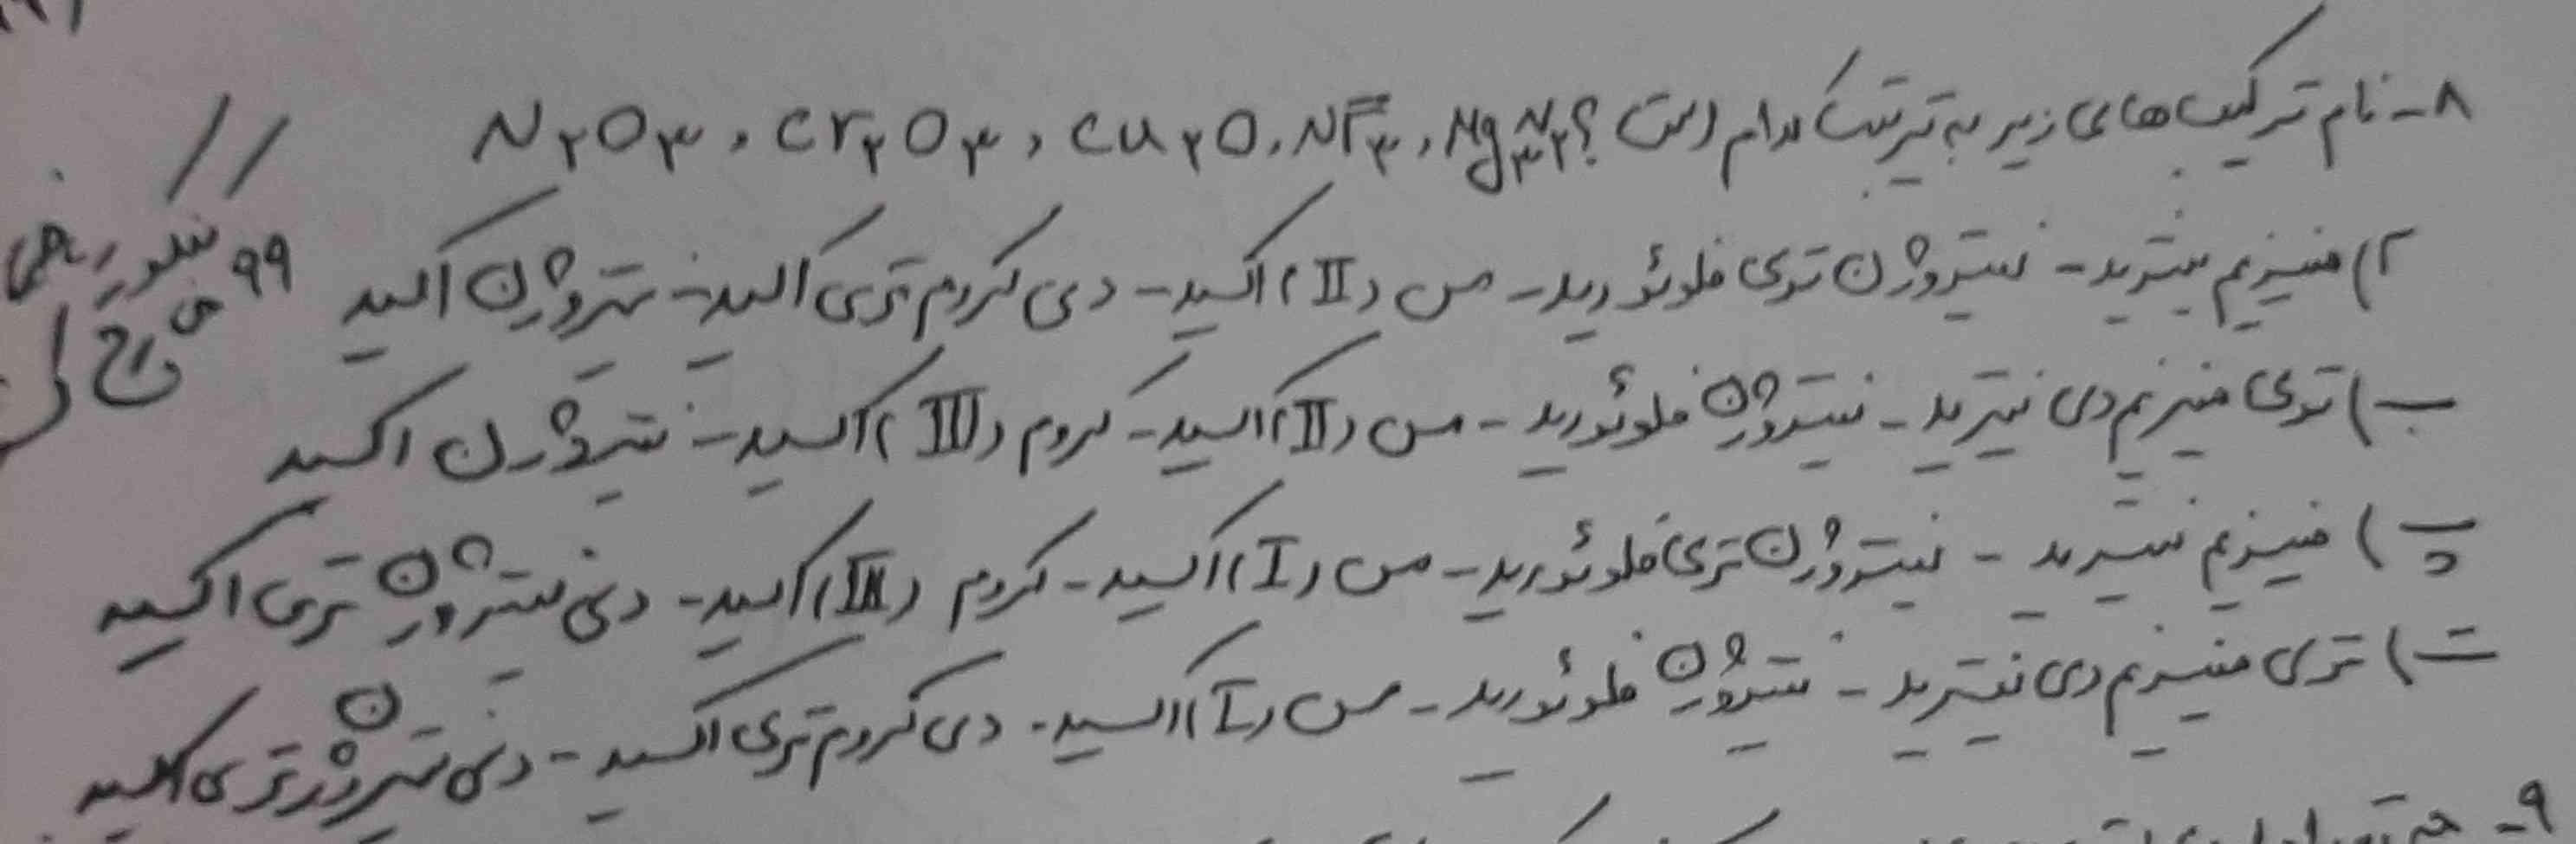 ۸- نام ترکیب های زیر به ترتیب کدام است؟ Mg۳N۲ ، NF۳ ، Cu۲O ، Cr۲O۳ ، N۲O۳
۱) منیزیم نیترید - نیتروژن تری فلوئورید - مس (II) اکسید - دی کروم تری اکسید - نیتروژن اکسید
ب) تری منیزیم دی نیترید - نیتروژن فلوئورید - مس (II) اکسید - کروم (III) اکسید - نیتروژن اکسید
پ) منیزیم نیترید - نیتروژن تری فلوئورید - مس (I) اکسید - کروم (III) اکسید - دی نیتروژن تری اکسید
ت) تری منیزیم دی نیترید - نیتروژن فلوئورید - مس (I) اکسید - دی کروم تری اکسید - دی نیتروژن تری اکسید
۹۹ خارج
۹-